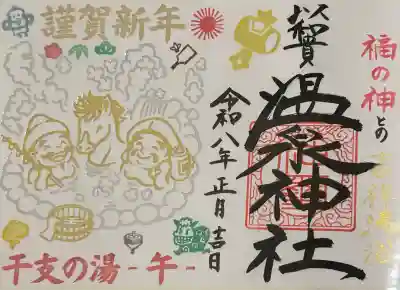 謹賀新年
干支の湯-午-
令和八年正月吉日
以賀
温泉神社
福の神との